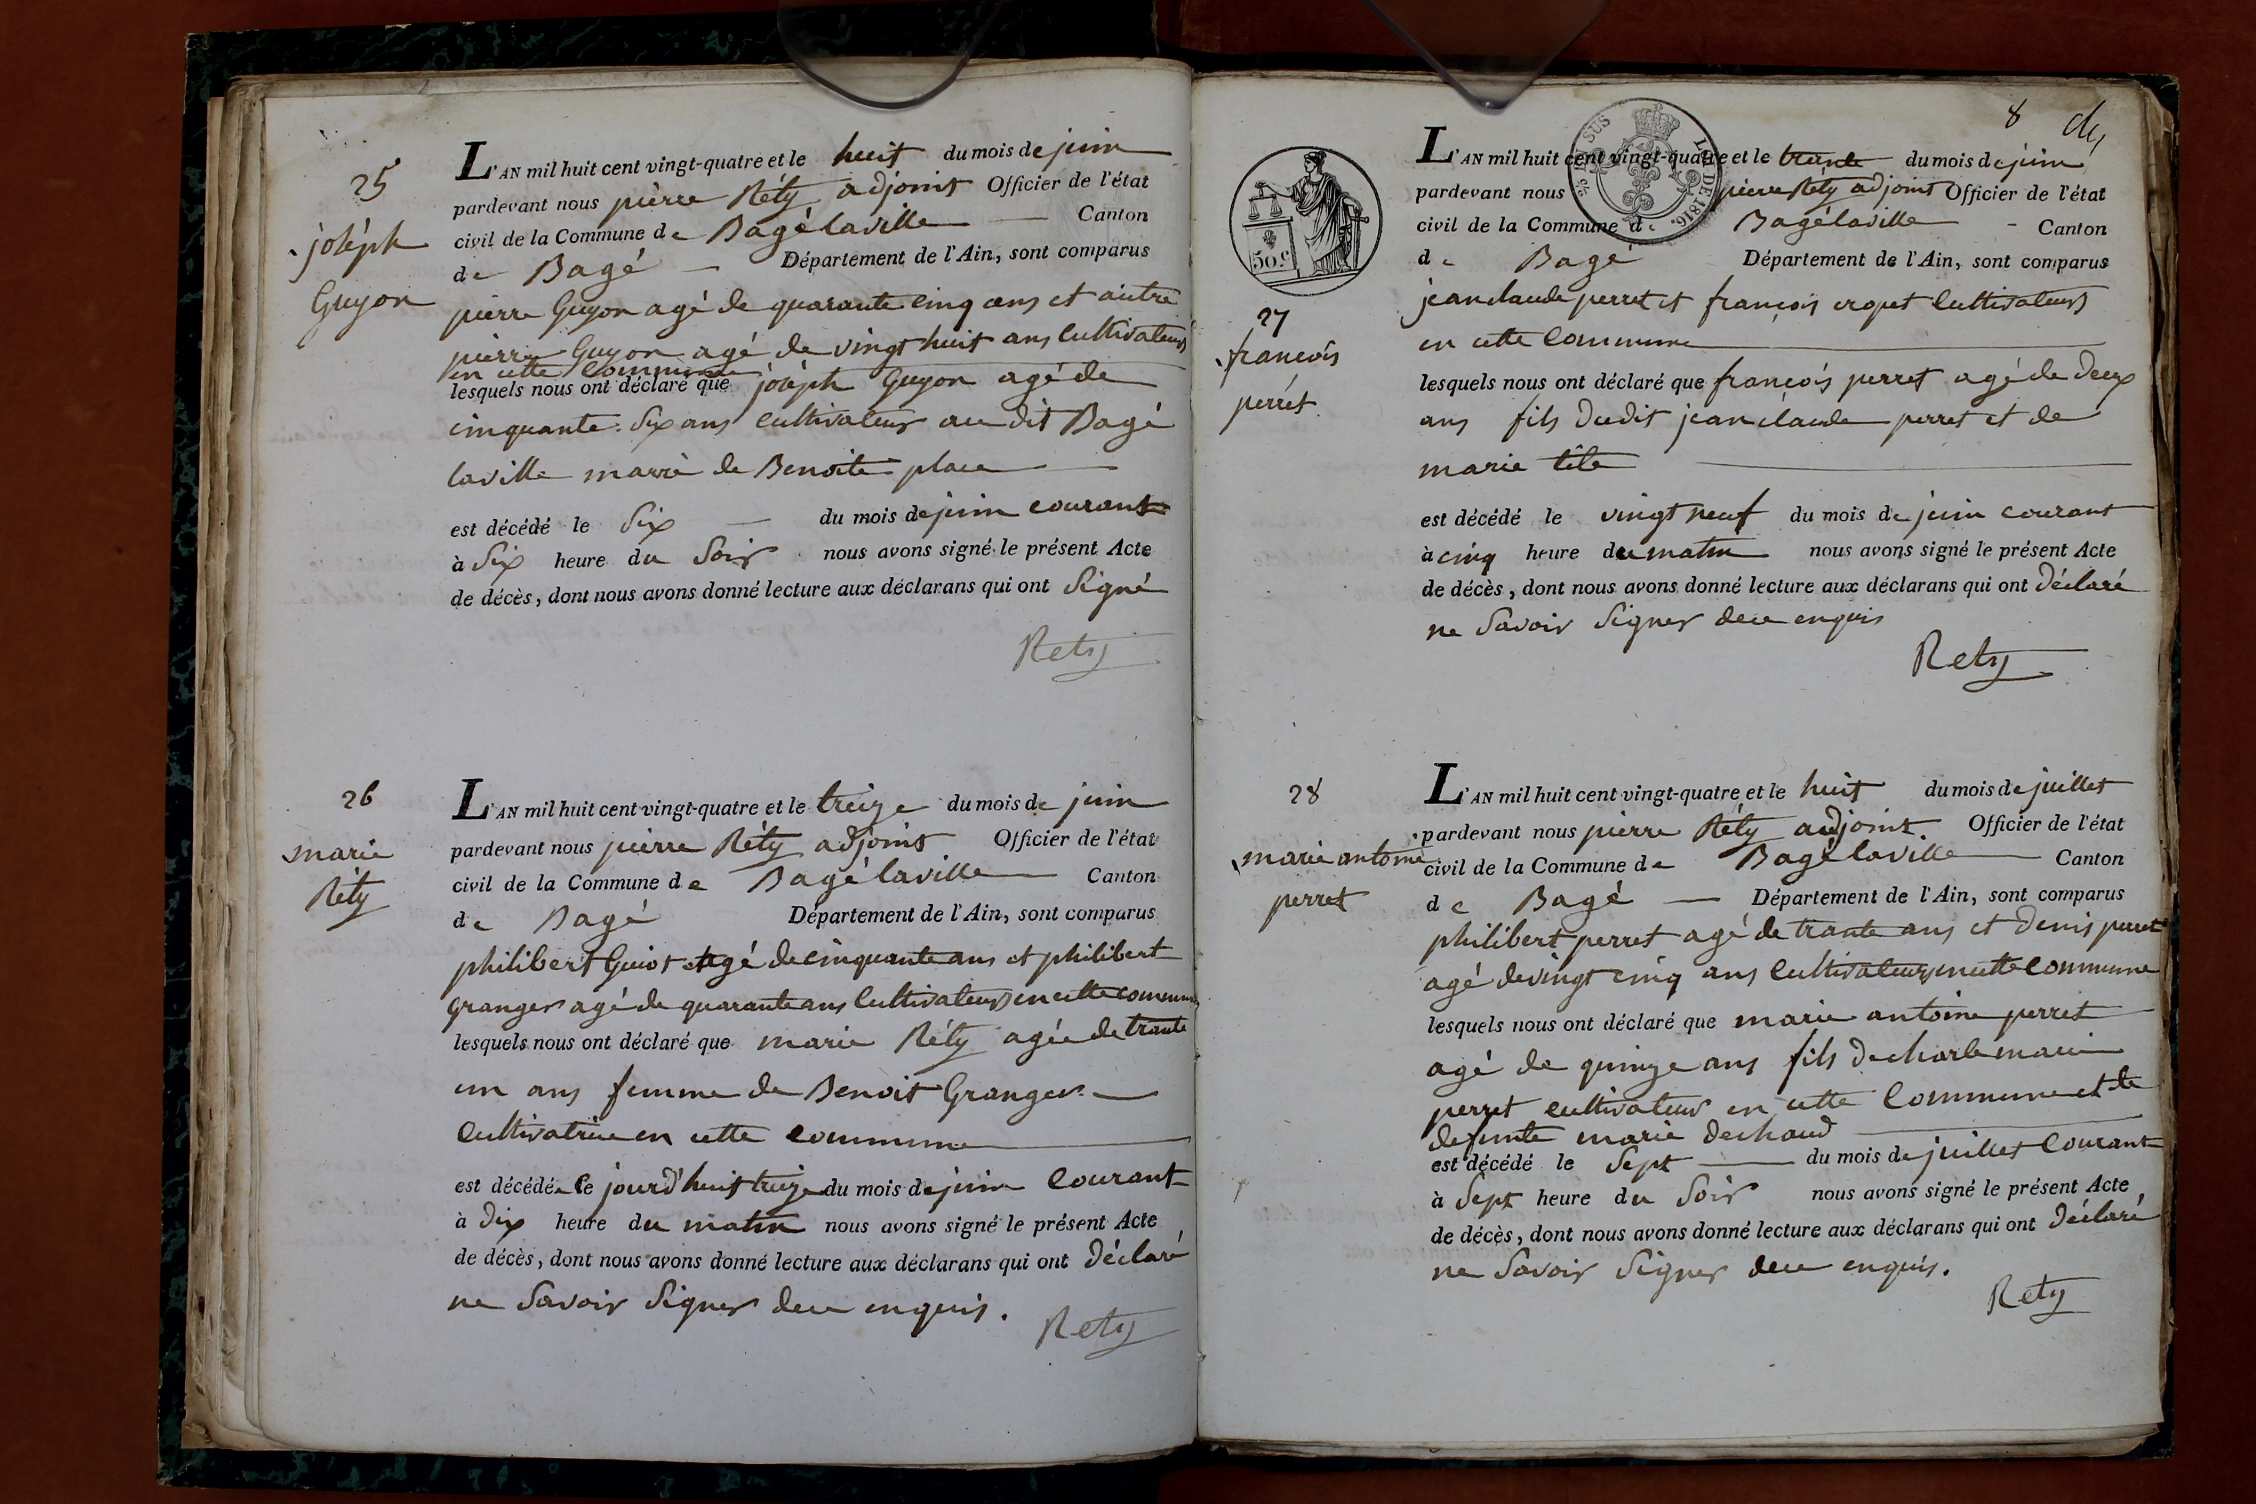 25
joséph
Guyon
L'AN mil huit cent vingt-quatre et le huit du mois de juin
pardevant nous pierre Réty adjoint Officier de l'état
civil de la Commune de Bagé laville Canton
de Bagé Département de l'Ain, sont comparus
pierre Guyon agé de quarante cinq ans et autre
pierre Guyon agé de vingt huit ans cultivateurs
en cette Commune
lesquels nous ont déclaré que joséph Guyon agé de
cinquante six ans cultivateur au dit Bagé
laville marié de Benoite place
est décédé le Six du mois de juin courant
à Six heure du Soir nous avons signé le présent Acte
de décès, dont nous avons donné lecture aux déclarans qui ont Signé
Rety
26
marie
Réty
L'AN mil huit cent vingt-quatre et le treize du mois de juin
pardevant nous pierre Réty adjoint Officier de l'état
civil de la Commune de Bagé laville Canton
de Bagé Département de l'Ain, sont comparus
philibert Guiot agé de cinquante ans et philibert
Granger agé de quarante ans Cultivateurs en cette commune
lesquels nous ont déclaré que marie Réty agée de trante
un ans femme de Benoit Granger
Cultivatrice en cette commune
est décédée le jourd'hui treize du mois de juin Courant
à dix heure du matin nous avons signé le présent Acte
de décès, dont nous avons donné lecture aux déclarans qui ont déclaré
ne Savoir Signer de ce enquis.
Rety
8
50.c
SUS
LOI DE 1816.
27
françois
perrét
L'AN mil huit cent vingt-quatre et le trante du mois de juin
pardevant nous pierre Réty adjoint Officier de l'état
civil de la Commune de Bagé laville Canton
de Bagé Département de l'Ain, sont comparus
jean claude perret et françois cropet Cultivateurs
en cette Commune
lesquels nous ont déclaré que françois perret agé de deux
ans fils dudit jean claude perret et de
marie tête
est décédé le vingt neuf du mois de juin courant
à cinq heure du matin nous avons signé le présent Acte
de décès, dont nous avons donné lecture aux déclarans qui ont déclaré
ne Savoir Signer de ce enquis
Rety
28
marie antoine
perret
L'AN mil huit cent vingt-quatre et le huit du mois de juillet
pardevant nous pierre Réty adjoint. Officier de l'état
civil de la Commune de Bagé laville Canton
de Bagé Département de l'Ain, sont comparus
philibert perret agé de trante ans et denis perret
agé de vingt cinq ans Cultivateurs en cette Commune
lesquels nous ont déclaré que marie antoine perret
agé de quinze ans fils de charle marie
perret cultivateur en cette Commune et de
defunte marie dechaud
est décédé le Sept du mois de juillet Courant
à Sept heure du Soir nous avons signé le présent Acte
de décès, dont nous avons donné lecture aux déclarans qui ont déclaré
ne Savoir Signer de ce enquis.
Rety